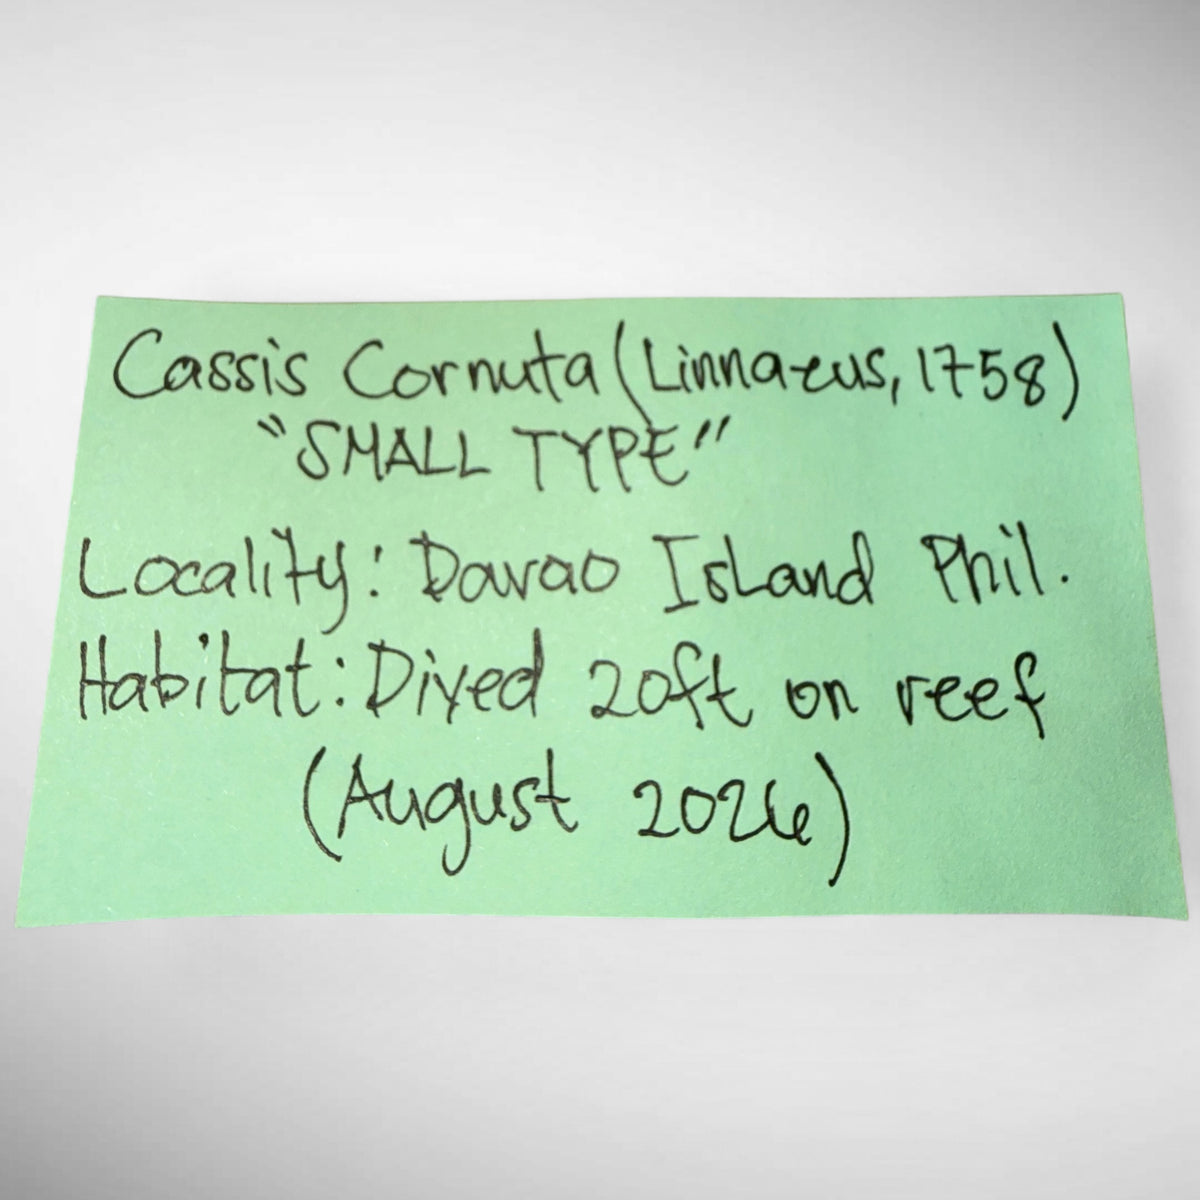 Cassis Cornuta (Linnaeus, 1758)
"SMALL TYPE"
Locality: Davao Island Phil.
Habitat: Dived 20ft on reef
(August 2026)